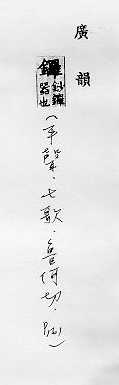 廣韻
鑼
鈔鑼
器也
（平聲．七歌．魯何切．）